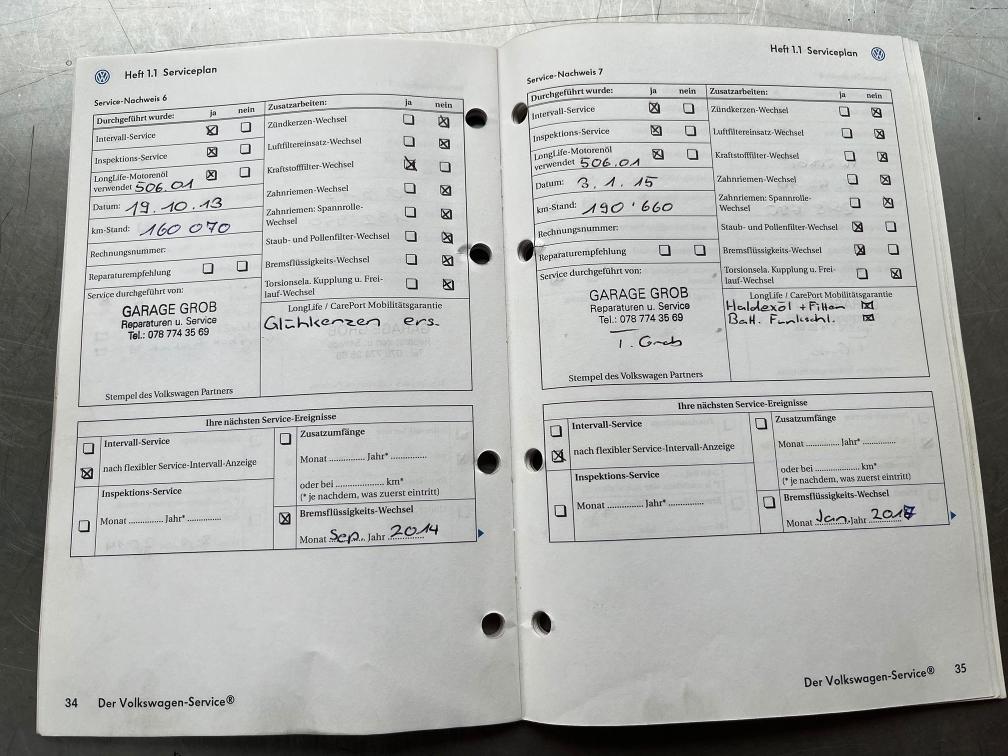 Heft 1.1 Serviceplan
Service-Nachweis 6
Durchgeführt wurde: ja nein
Intervall-Service
Inspektions-Service
LongLife-Motorenöl
verwendet 506.01
Datum: 19.10.13
km-Stand: 160 070
Rechnungsnummer:
Reparaturempfehlung
Service durchgeführt von:
GARAGE GROB
Reparaturen u. Service
Tel.: 078 774 35 69
Stempel des Volkswagen Partners
Zusatzarbeiten: ja nein
Zündkerzen-Wechsel
Luftfiltereinsatz-Wechsel
Kraftstofffilter-Wechsel
Zahnriemen-Wechsel
Zahnriemen: Spannrolle-
Wechsel
Staub- und Pollenfilter-Wechsel
Bremsflüssigkeits-Wechsel
Torsionsela. Kupplung u. Frei-
lauf-Wechsel
LongLife / CarePort Mobilitätsgarantie
Glühkenzen ers.
Ihre nächsten Service-Ereignisse
Intervall-Service
nach flexibler Service-Intervall-Anzeige
Inspektions-Service
Monat ............ Jahr* ............
Zusatzumfänge
Monat ............ Jahr* ............
oder bei ......................... km*
(* je nachdem, was zuerst eintritt)
Bremsflüssigkeits-Wechsel
Monat Sep. Jahr 2014
34 Der Volkswagen-Service®
Heft 1.1 Serviceplan
Service-Nachweis 7
Durchgeführt wurde: ja nein
Intervall-Service
Inspektions-Service
LongLife-Motorenöl
verwendet 506.01
Datum: 3.1.15
km-Stand: 190'660
Rechnungsnummer:
Reparaturempfehlung
Service durchgeführt von:
GARAGE GROB
Reparaturen u. Service
Tel.: 078 774 35 69
I. Grob
Stempel des Volkswagen Partners
Zusatzarbeiten: ja nein
Zündkerzen-Wechsel
Luftfiltereinsatz-Wechsel
Kraftstofffilter-Wechsel
Zahnriemen-Wechsel
Zahnriemen: Spannrolle-
Wechsel
Staub- und Pollenfilter-Wechsel
Bremsflüssigkeits-Wechsel
Torsionsela. Kupplung u. Frei-
lauf-Wechsel
LongLife / CarePort Mobilitätsgarantie
Haldexöl +
Batt. Funkschl.
Ihre nächsten Service-Ereignisse
Intervall-Service
nach flexibler Service-Intervall-Anzeige
Inspektions-Service
Monat ............ Jahr* ............
Zusatzumfänge
Monat ............ Jahr* ............
oder bei ......................... km*
(* je nachdem, was zuerst eintritt)
Bremsflüssigkeits-Wechsel
Monat Jan. Jahr 2017
Der Volkswagen-Service® 35